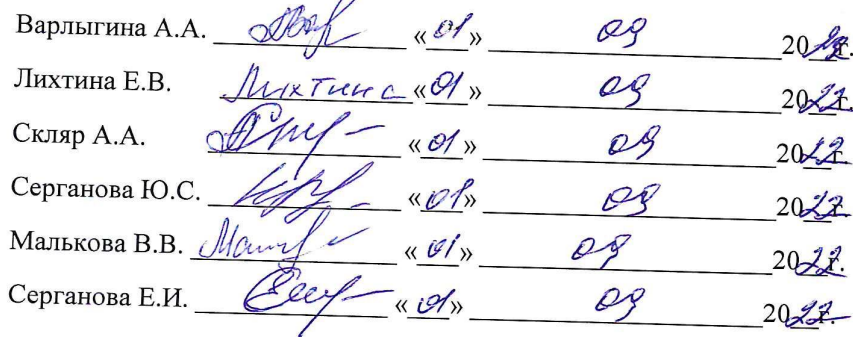 Варлыгина А.А. «01» 09 2022г.
Лихтина Е.В. Лихтина «01» 09 2022г.
Скляр А.А. «01» 09 2022г.
Серганова Ю.С. «01» 09 2022г.
Малькова В.В. «01» 09 2022г.
Серганова Е.И. «01» 09 2022г.